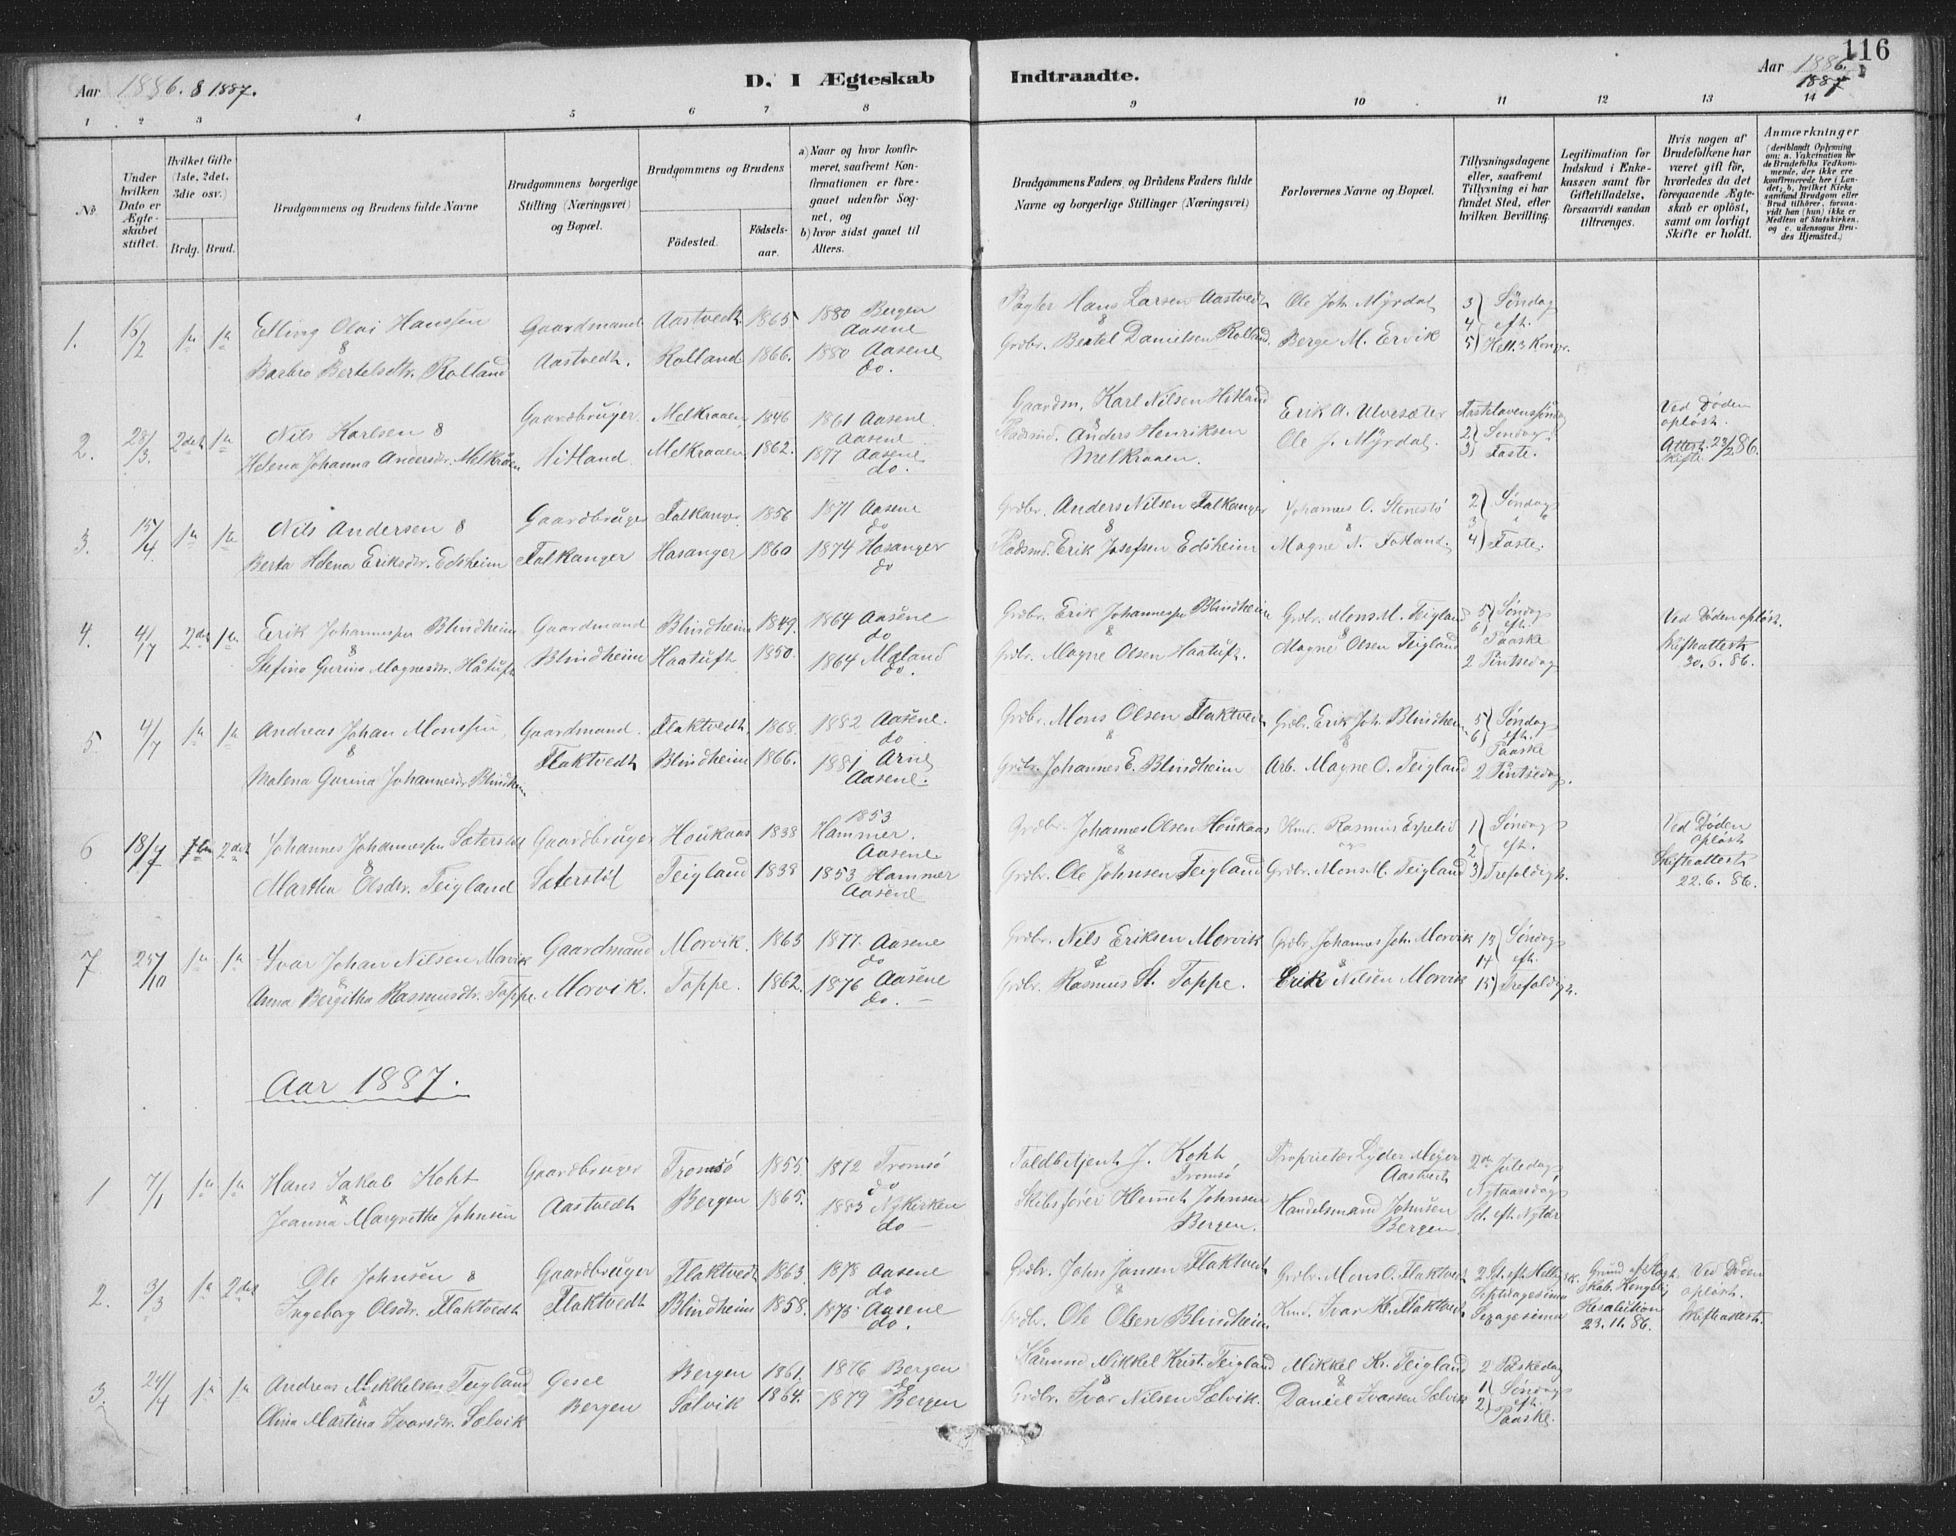 116
Aar 1886. & 1887.
D. I Ægteskab
Indtraadte.
Aar 1886.
1887
1 2 3 4 5 6 7 8
9 10 11 12 13 14
No.
Under hvilken Dato er Ægteskabet stiftet.
Hvilket Gifte (1ste, 2det, 3die osv.)
Brdg. Brud.
Brudgommens og Brudens fulde Navne
Brudgommens borgerlige Stilling (Næringsvei) og Bopæl.
Brudgommens og Brudens
Födested.
Födselsaar.
a) Naar og hvor konfirmeret, saafremt Konfirmationen er foregaaet udenfor Sognet, og
b) hvor sidst gaaet til Alters.
Brudgommens Faders og Brudens Faders fulde Navne og borgerlige Stillinger (Næringsvei)
Forlovernes Navne og Bopæl.
Tillysningsdagene eller, saafremt Tillysning ei har fundet Sted, efter hvilken Bevilling.
Legitimation for Indskud i Enkekassen samt for Giftetilladelse, forsaavidt saadan tiltrænges.
Hvis nogen af Brudefolkene har været gift før, hvorledes da det foregaaende Ægteskab er opløst, samt om lovligt Skifte er holdt.
Anmærkninger (deriblandt Oplysning om: a. Vakcination for de Brudefolks Vedkommende, der ikke ere konfirmerede her i Landet; b. hvilket Kirkesamfund Brudgom eller Brud tilhører, forsaavidt han (hun) ikke er Medlem af Statskirken, og c. udensogns Brudes Hjemsted.)
1. 16/2 1ste 1ste Elling Olai Hanssen Gaardmand Aastvedt 1865 1880 Bergen Aasene Hans Larsen Aastvedt Ole Joh. Myrdal 3) Søndag
& 4 eft.
Barbro Bertelsdtr. Rolland Aastvedt. Rolland 1866. 1880 Aasene do. Grdbr. Bertel Danielsen Rolland. Berge M. Ervik 5) Hell. 3 Konger.
2. 28/3. 2det 1ste Nils Karlsen & Gaardbruger Melkraaen 1846 1861 Aasene Aasene Gaardm. Karl Nilsen Hitland Erik A. Ulvesæter Fastelavenssøndag Ved Døden opløst.
Helena Johanna Andersdr. Melkraaen Hitland Melkraaen 1862. 1877 Aasene do. Pladsmd. Anders Henriksen Melkraaen. Ole J. Myrdal. 2) Søndag 3) Faste. Skifte Attest 23/3 86.
3. 15/4. 1ste 1ste Nils Andersen & Gaardbruger Falkanger 1856 1871 Aasene do Grdbr. Anders Nilsen Falkanger Johannes O. Stenestø 2) Søndag
Berta Helena Eriksdr. Edsheim Falkanger Hosanger 1860 1874 Hosanger do Pladsmd. Erik Josefsen Edsheim Magne N. Totland. 3 4) Faste.
4. 4/7 2det 1ste Erik Johannessen Blindheim Gaardmand Blindheim 1849. 1864 Aasene do Grdbr. Erik Johannessen Blindheim Grdbr. Mons M. Teigland 5) Søndag 6) eft. Paaske Ved Døden opløst.
& Stefina Gurina Magnesdr. Håtuft Blindheim Haatuft 1850. 1864 Mæland do. Grdbr. Magne Olsen Haatuft. Magne Olsen Teigland 2 Pintsedag Skifteattest 30.6.86.
5 4/7 1ste 1ste Andreas Johan Monssen Gaardmand. Flaktvedt 1868. 1882 Aasene. do Grdbr. Mons Olsen Flaktvedt Grdbr. Erik Joh. Blindheim 5) Søndag 6) eft. Paaske
& Malena Gurina Johannesdr. Blindheim Flaktvedt Blindheim 1866. 1881 Arne Aasene. Grdbr. Johannes E. Blindheim Arb. Magne O. Teigland 2 Pintsedag.
6 18/7 1ste 2det Johannes Johannessen Sæterstøl Gaardbruger Houkaas 1838 1853 Hammer. Aasene Grdbr. Johannes Olsen Houkaas Kmd. Rasmus Espelid 1) Søndag 2 eft. Ved Døden opløst
& Martha Olsdr. Teigland Sæterstøl Teigland 1838 1853 Hammer Aasene Grdbr. Ole Johnsen Teigland Grdbr. Mons M. Teigland 3) Trefoldigh. Skifteattest 22.6.86.
7 25/10 1ste 1ste Ivar Johan Nilsen Morvik Gaardmand Morvik. 1863 1877. Aasene do Grdbr. Nils Eriksen Morvik Grdbr. Johannes Joh. Morvik 13) Søndag 14 eft.
Anna Bergitha Rasmusdtr. Toppe Morvik. Toppe. 1862. 1876 Aasene do. Grdbr. Rasmus St. Toppe. Erik Nilsen Morvik 15) Trefoldigh.
Aar 1887.
1 7/1 1ste 1ste Hans Jakob Koht Gaardbruger Tromsø 1855 1872 Tromsø do Toldbetjent J. Koht Tromsø Proprietær Lyder Meyer Aastvedt 2den Juledag
& Jeanna Margrethe Johnsen Aastvedt Bergen 1865. 1883 Nykirken do Skibsfører Johnsen Bergen. Handelsmand Johnsen Bergen Nytaarsdag Sd. eft. Nytår
2. 3/3 1ste 2det Ole Johnsen & Gaardbruger Flaktvedt 1863. 1878 Aasene do Grdbr. John Jansen Flaktvedt Grdbr. Mons O. Flaktvedt 2 Sd. eft. Hell. 3 K. Septuagesima Kongelig Resolution 23.11.86. Ved Døden opløst.
Ingeborg Olsdr. Flaktvedt Flaktvedt Blindheim 1858. 1873 Aasene do. Grdbr. Ole Olsen Blindheim. Kmd. Ivar H. Flaktvedt Sexagesima Skifteattest.
3. 24/4 1ste 1ste Andreas Mikkelsen Teigland Gesel Bergen 1861. 1876 Bergen do Kårmd Mikkel Krist. Teigland Mikkel Kr. Teigland 2 Påskedag
& Martina Ivarsdr. Sælvik Bergen Sælvik 1864. 1879 Bergen Grdbr. Ivar Nilsen Sælvik. Daniel Ivarsen Sælvik 1) Søndag 2) eft. Paaske.